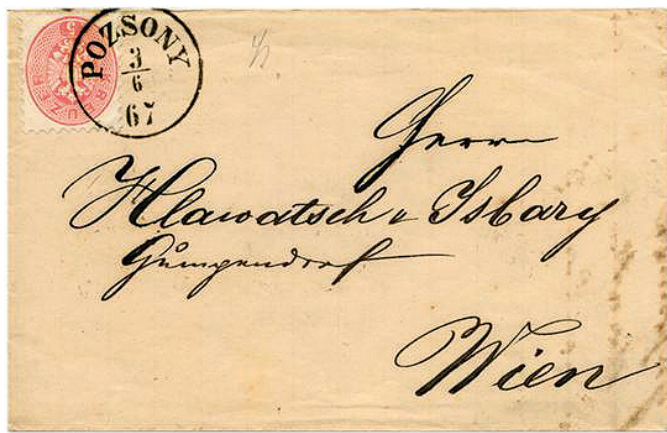 POZSONY
3
6
67
5
KREUZER
Herrn
Hlawatsch & Isbary
Gumpendorf
Wien